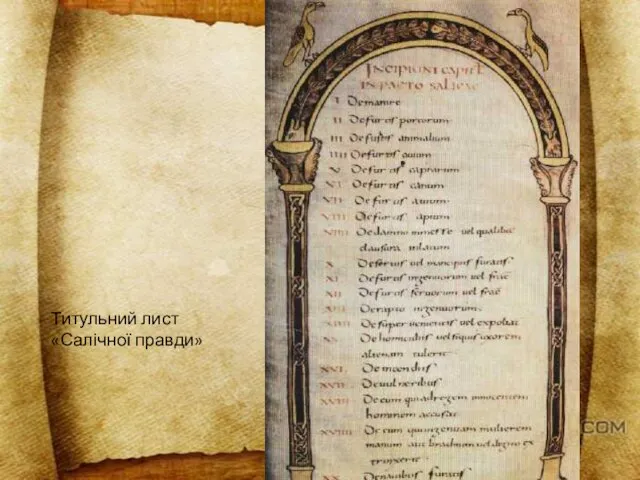 INCIPIUNT CAPITL
IN PACTO SALICAE
I De manire
II De furtis porcorum
III De furtis animalium
IIII De furtis ouium
V De furtis caprarum
VI De furtis canum
VII De furtis auium
VIII De furtis apium
VIIII De damno in messe uel qualibet
clausura inlatum
X De seruis uel mancipiis furatis
XI De furtis ingenuorum uel
XII De furtis seruorum uel
XIII De rapto ingenuorum
XIIII De super uenientis uel expoliat
XV De homicidiis uel uxorem
alienam tulerit
XVI De incendiis
XVII De uulneribus
XVIII De eum qui ad regem innocentem
hominem accusat
XVIIII De eum qui ingenuam mulierem
manum aut brachium uel digitum ex
trinxerit
XX De nauibus furatis
Титульний лист
«Салічної правди»
COM